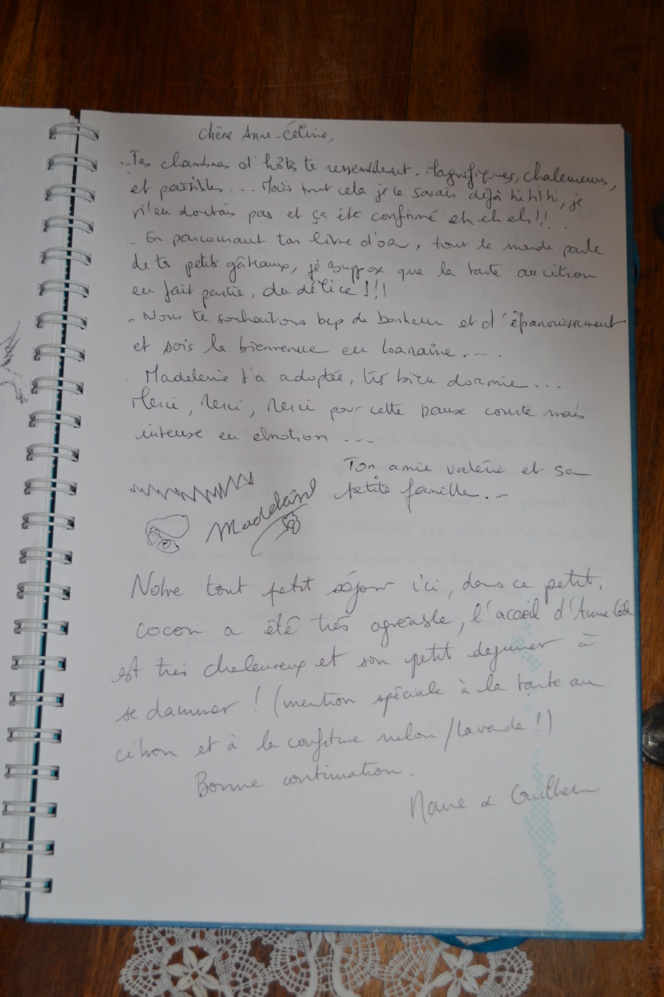 Chère Anne-Céline,
. Tes chambres d'hôte te ressemblent. Magnifiques, chaleureuses,
et paisibles... Mais tout cela je le savais déjà hi hi hi, je
n'en doutais pas et ça été confirmé eh eh eh!!
. En parcourant ton livre d'or, tout le monde parle
de tes petits gâteaux, je suppose que la tarte au citron
en fait partie, du délice !!!
- Nous te souhaitons bcp de bonheur et d'épanouissement
et sois la bienvenue en Lorraine....
. Madeleine t'a adoptée, très bien dormie...
Merci, Merci, Merci pour cette pause courte mais
intense en émotion ...
Ton amie Valérie et sa
petite famille..
Madeleine
Notre tout petit séjour ici, dans ce petit
cocon a été très agréable, l'accueil d'Anne
est très chaleureux et son petit dejeuner à
se damner ! (mention spéciale à la tarte au
citron et à la confiture melon/lavande !)
Bonne continuation.
&